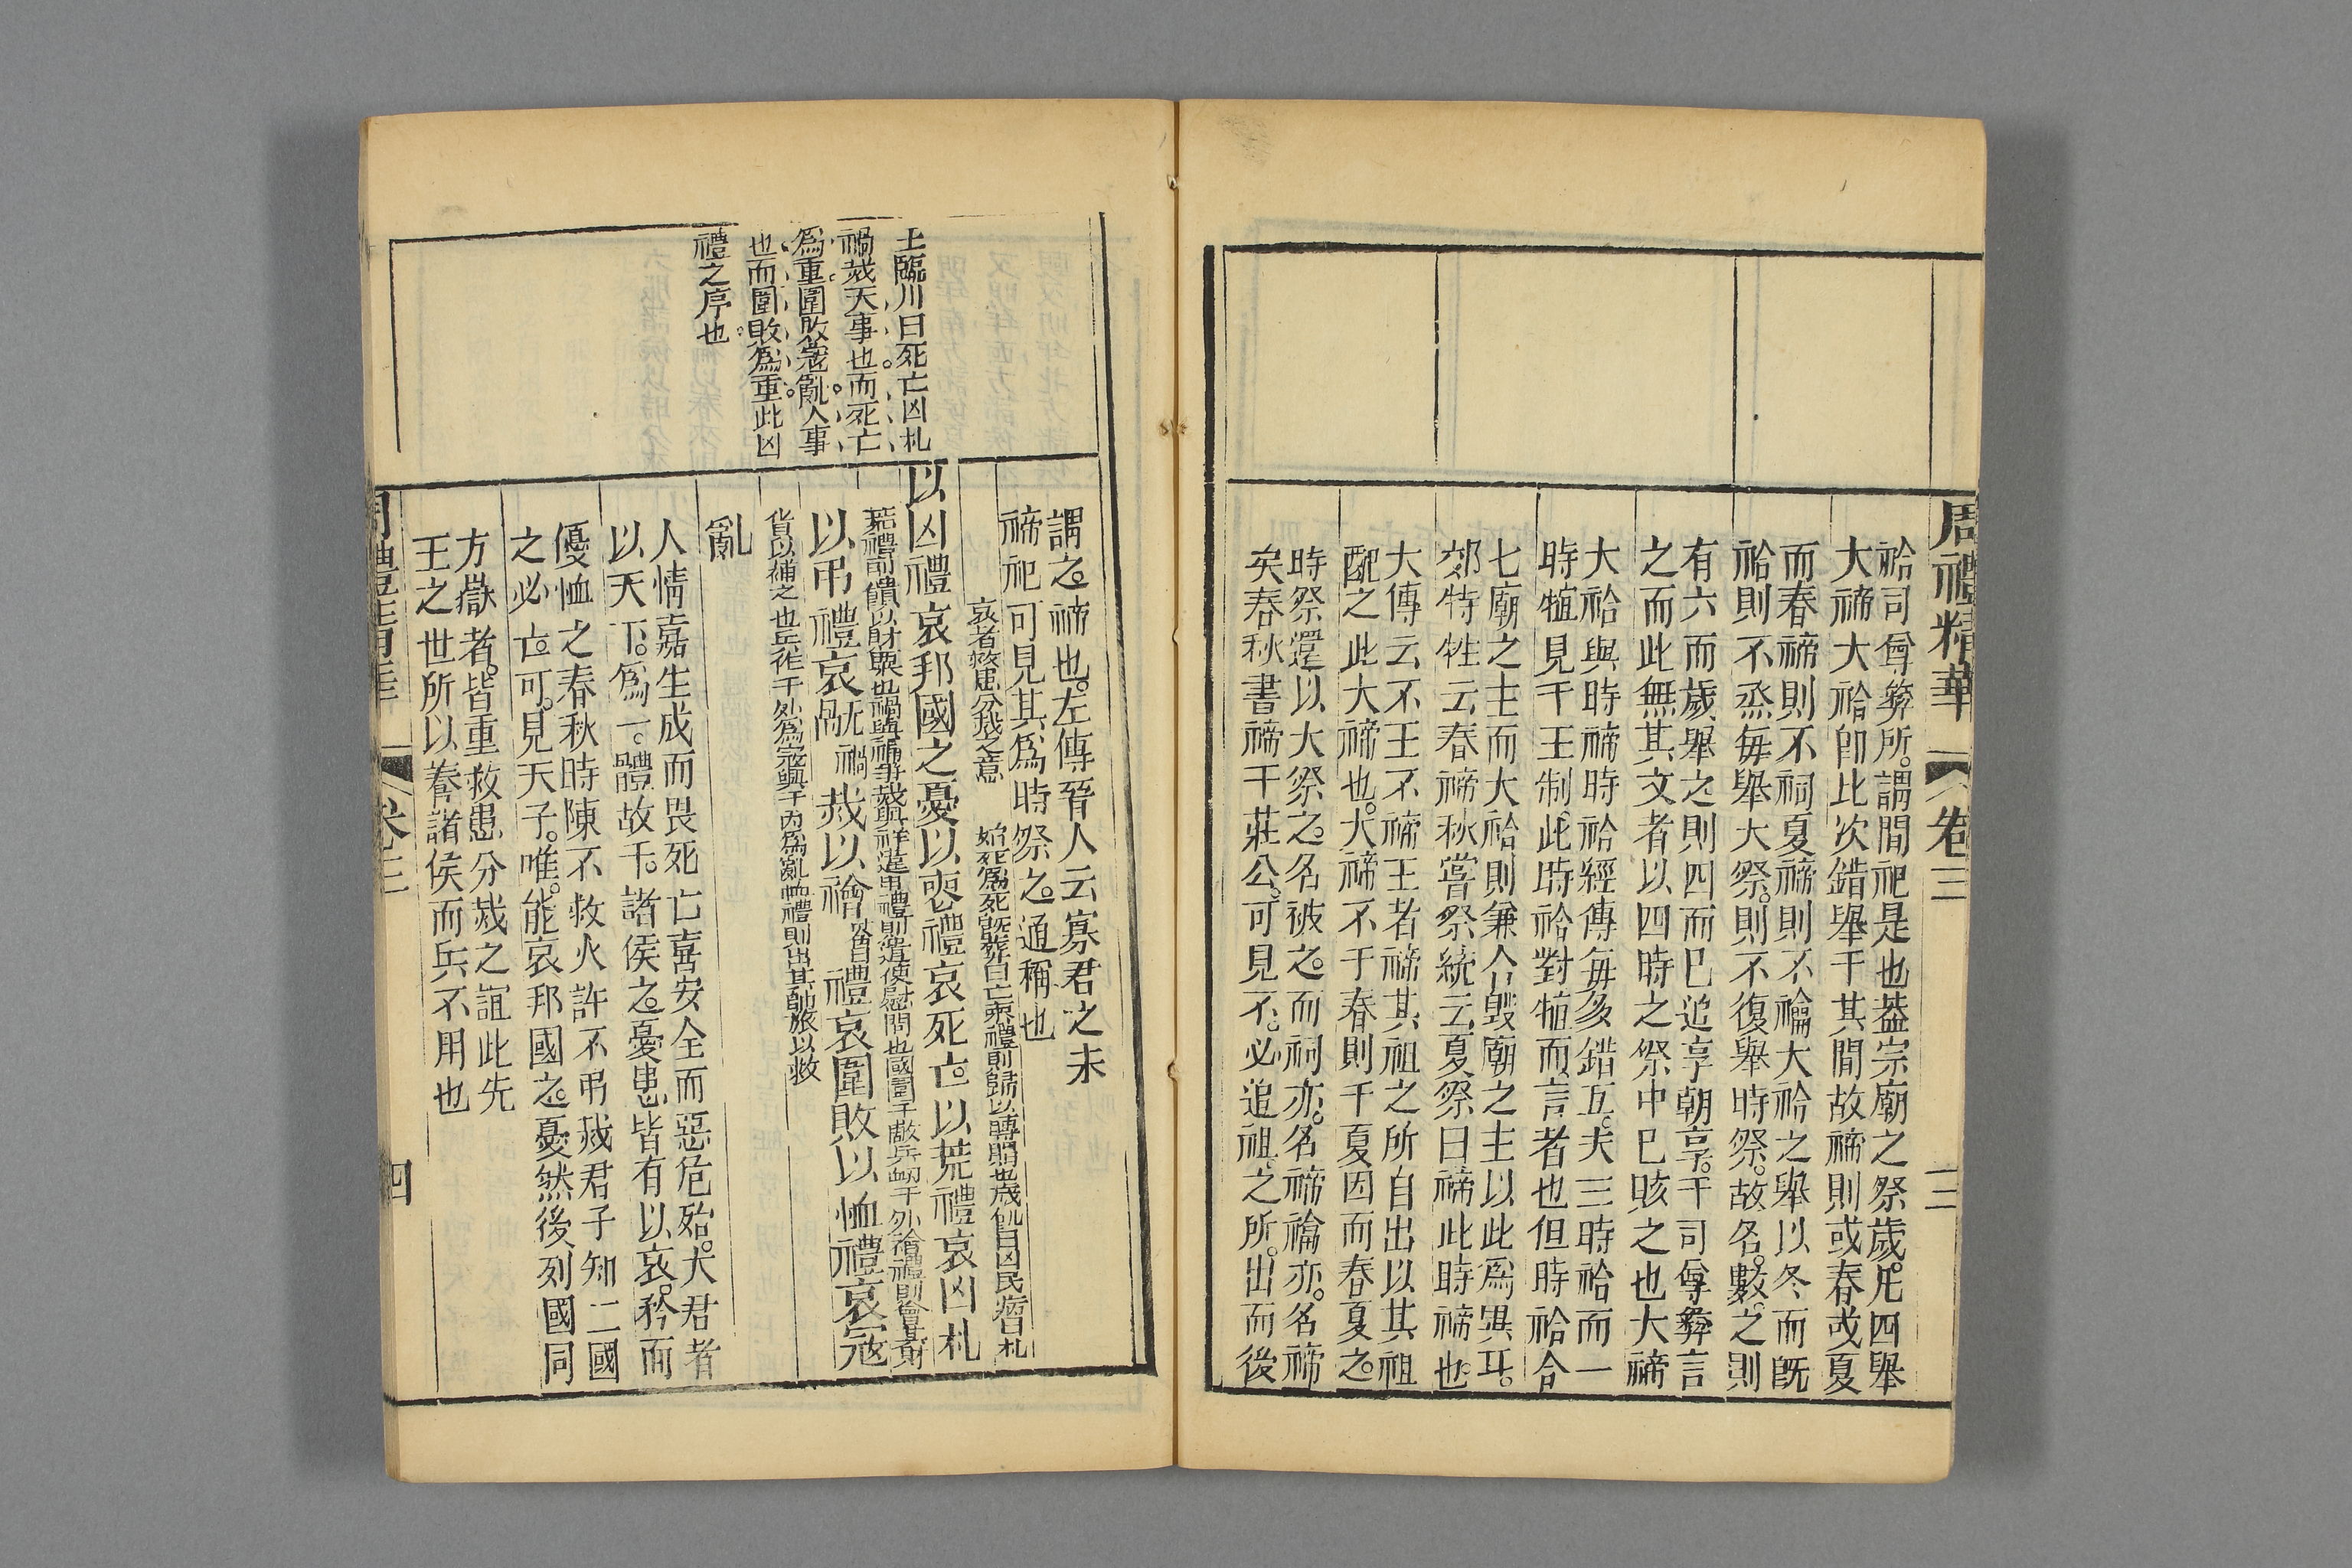 周禮精華 卷三 三
祫司尊彜所謂間祀是也葢宗廟之祭歲凡四舉
大禘大祫卽比次錯舉于其間故禘則或春或夏
而春禘則不祠夏禘則不禴大祫之舉以冬而旣
祫則不烝毎舉大祭則不復舉時祭故名數之則
有六而歲舉之則四而已追享朝享于司尊彜言
之而此無其文者以四時之祭中巳賅之也大禘
大祫與時禘時祫經傳毎多錯互夫三時祫而一
時犆見于王制此時祫對犆而言者也但時祫合
七廟之主而大祫則兼合毀廟之主以此爲異耳
郊特牲云春禘秋嘗祭統云夏祭曰禘此時禘也
大傳云不王不禘王者禘其祖之所自出以其祖
配之此大禘也大禘不于春則于夏因而春夏之
時祭還以大祭之名被之而祠亦名禘禴亦名禘
矣春秋書禘于莊公可見不必追祖之所出而後
謂之禘也左傳晉人云寡君之未
禘祀可見其爲時祭之通稱也
王臨川曰死亡凶札
禍烖天事也而死亡
爲重圍敗寇亂人事
也而圍敗爲重此凶
禮之序也
以凶禮哀邦國之憂
哀者救患分烖之意
以喪禮哀死亡
始死爲死旣葬曰亡喪禮則歸以賻賵也歲飢曰凶民瘠曰札
以荒禮哀凶札
荒禮則饋以財粟也禍與福對烖與祥違弔禮則遣使慰問也國圍于敵兵衂于外禬禮則會其財
以弔禮哀禍烖
以禬禮哀圍敗以恤禮哀寇
貨以補之也兵作于外爲寇興于内爲亂恤禮則出其師旅以救
亂
人情嘉生成而畏死亡喜安全而惡危殆夫君者
以天下爲一體故于諸侯之憂患皆有以哀矜而
優恤之春秋時陳不救火許不弔烖君子知二國
之必亡可見天子唯能哀邦國之憂然後列國同
方嶽者皆重救患分烖之誼此先
王之世所以養諸侯而兵不用也
卷三 四